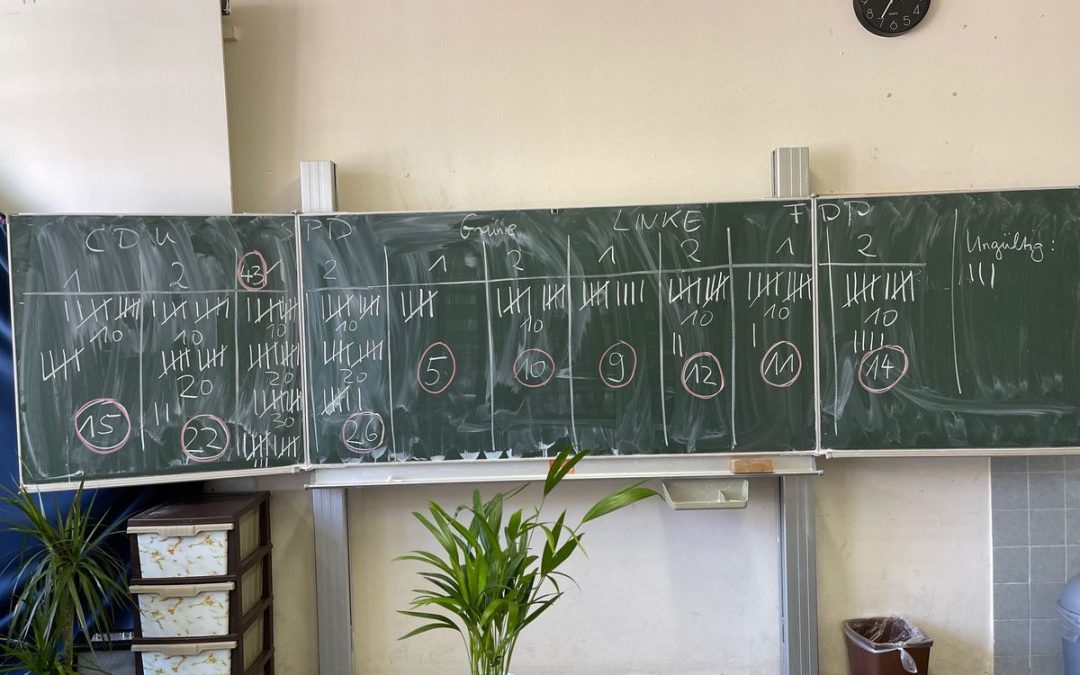 8 7 6 5 4
CDU SPD Grüne LINKE FDP Ungültig:
1 2 43 2 1 2 1 2 1 2
10 10 10 10 10 10 10 10
20 20 20 5 10 9 12 11 14
30
15 22 26